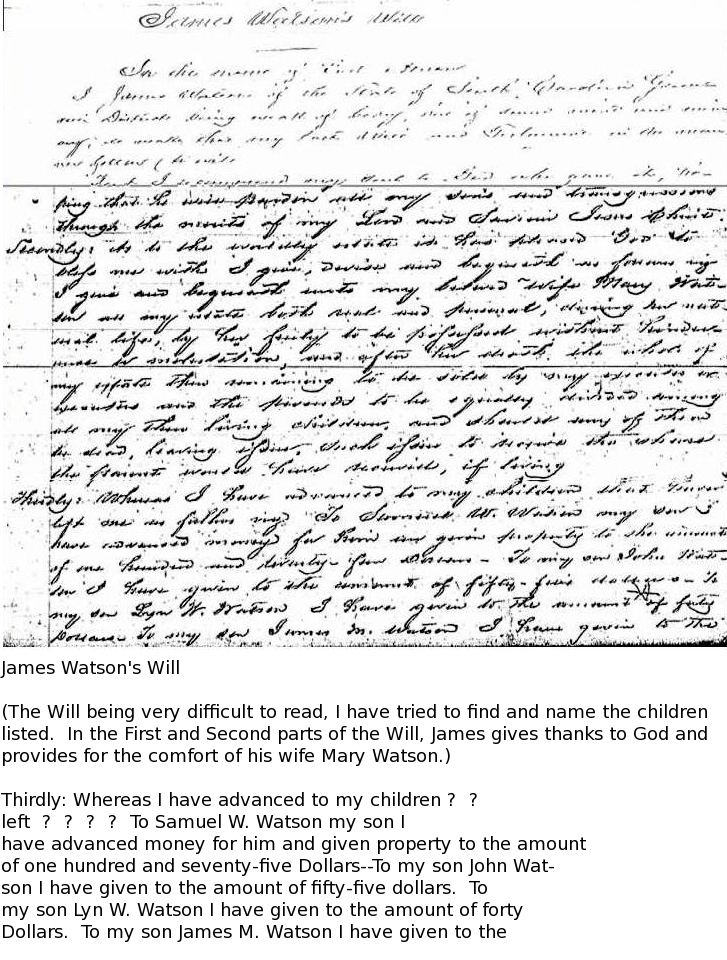 James Watson's Will
In the name of God Amen
I James Watson of the State of South Carolina
and District being weak of body, but of sound mind and
my last Will and Testament in the
First I recommend my Soul to God who gave it, ho-
ping that he will pardon all my sins and transgressions
through the merits of my Lord and Saviour Jesus Christ
Secondly: As to the worldly estate it has pleased God to
bless me with I give, devise and bequeath as follows viz
I give and bequeath unto my beloved wife Mary Wat-
son all my estate both real and personal, during her nat-
ural life, by her freely to be possessed without hindre
ance or molestation, and after her death the whole of
my estate then remaining to be sold by my executor or
executors and the proceeds to be equally divided among
all my then living children, and should any of them
be dead, leaving issue, such issue to receive the share
the parent would have received, if living
Thirdly: Whereas I have advanced to my children that have
left me as follows viz: To W. Watson my son I
have advanced money for him and given property to the amount
of one hundred and seventy-five Dollars - To my son John Wat-
son I have given to the amount of fifty-five dollars - To
my son Lyn W. Watson I have given to the amount of forty
Dollars. To my son James M. Watson I have given to the
James Watson's Will
(The Will being very difficult to read, I have tried to find and name the children
listed.  In the First and Second parts of the Will, James gives thanks to God and
provides for the comfort of his wife Mary Watson.)
Thirdly: Whereas I have advanced to my children ?  ?
left  ?  ?  ?  ?  To Samuel W. Watson my son I
have advanced money for him and given property to the amount
of one hundred and seventy-five Dollars--To my son John Wat-
son I have given to the amount of fifty-five dollars.  To
my son Lyn W. Watson I have given to the amount of forty
Dollars.  To my son James M. Watson I have given to the